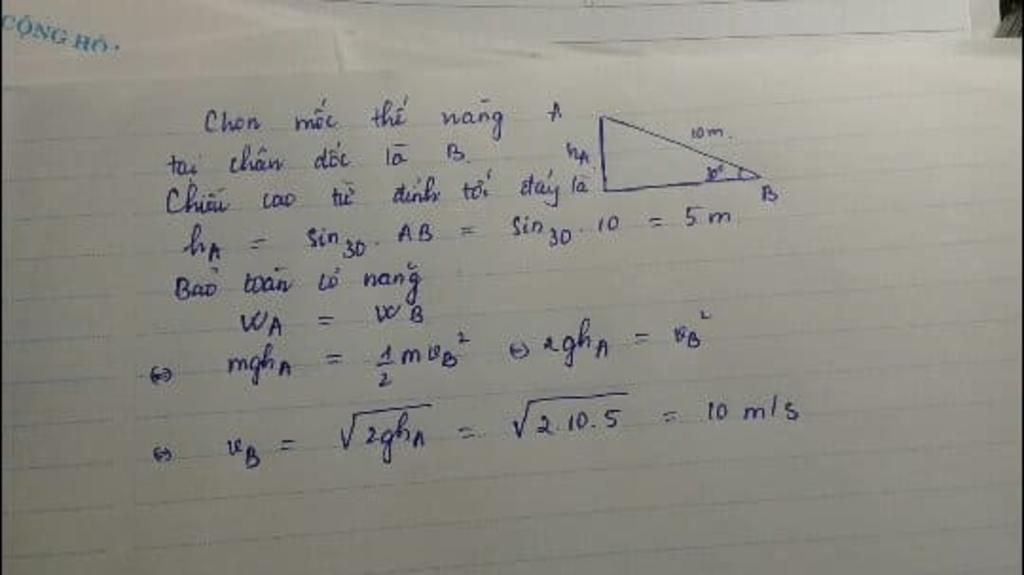 CỘNG HÒ
Chọn mốc thế năng
tại chân dốc là B.
Chiều cao từ đỉnh tới đáy là
A
10m.
hA
30°
B
hA = sin30 . AB = sin30 . 10 = 5 m
Bảo toàn cơ năng
WA = WB
⇔ mghA = 1/2 mvB² ⇔ 2ghA = vB²
⇔ vB = √2ghA = √2.10.5 = 10 m/s